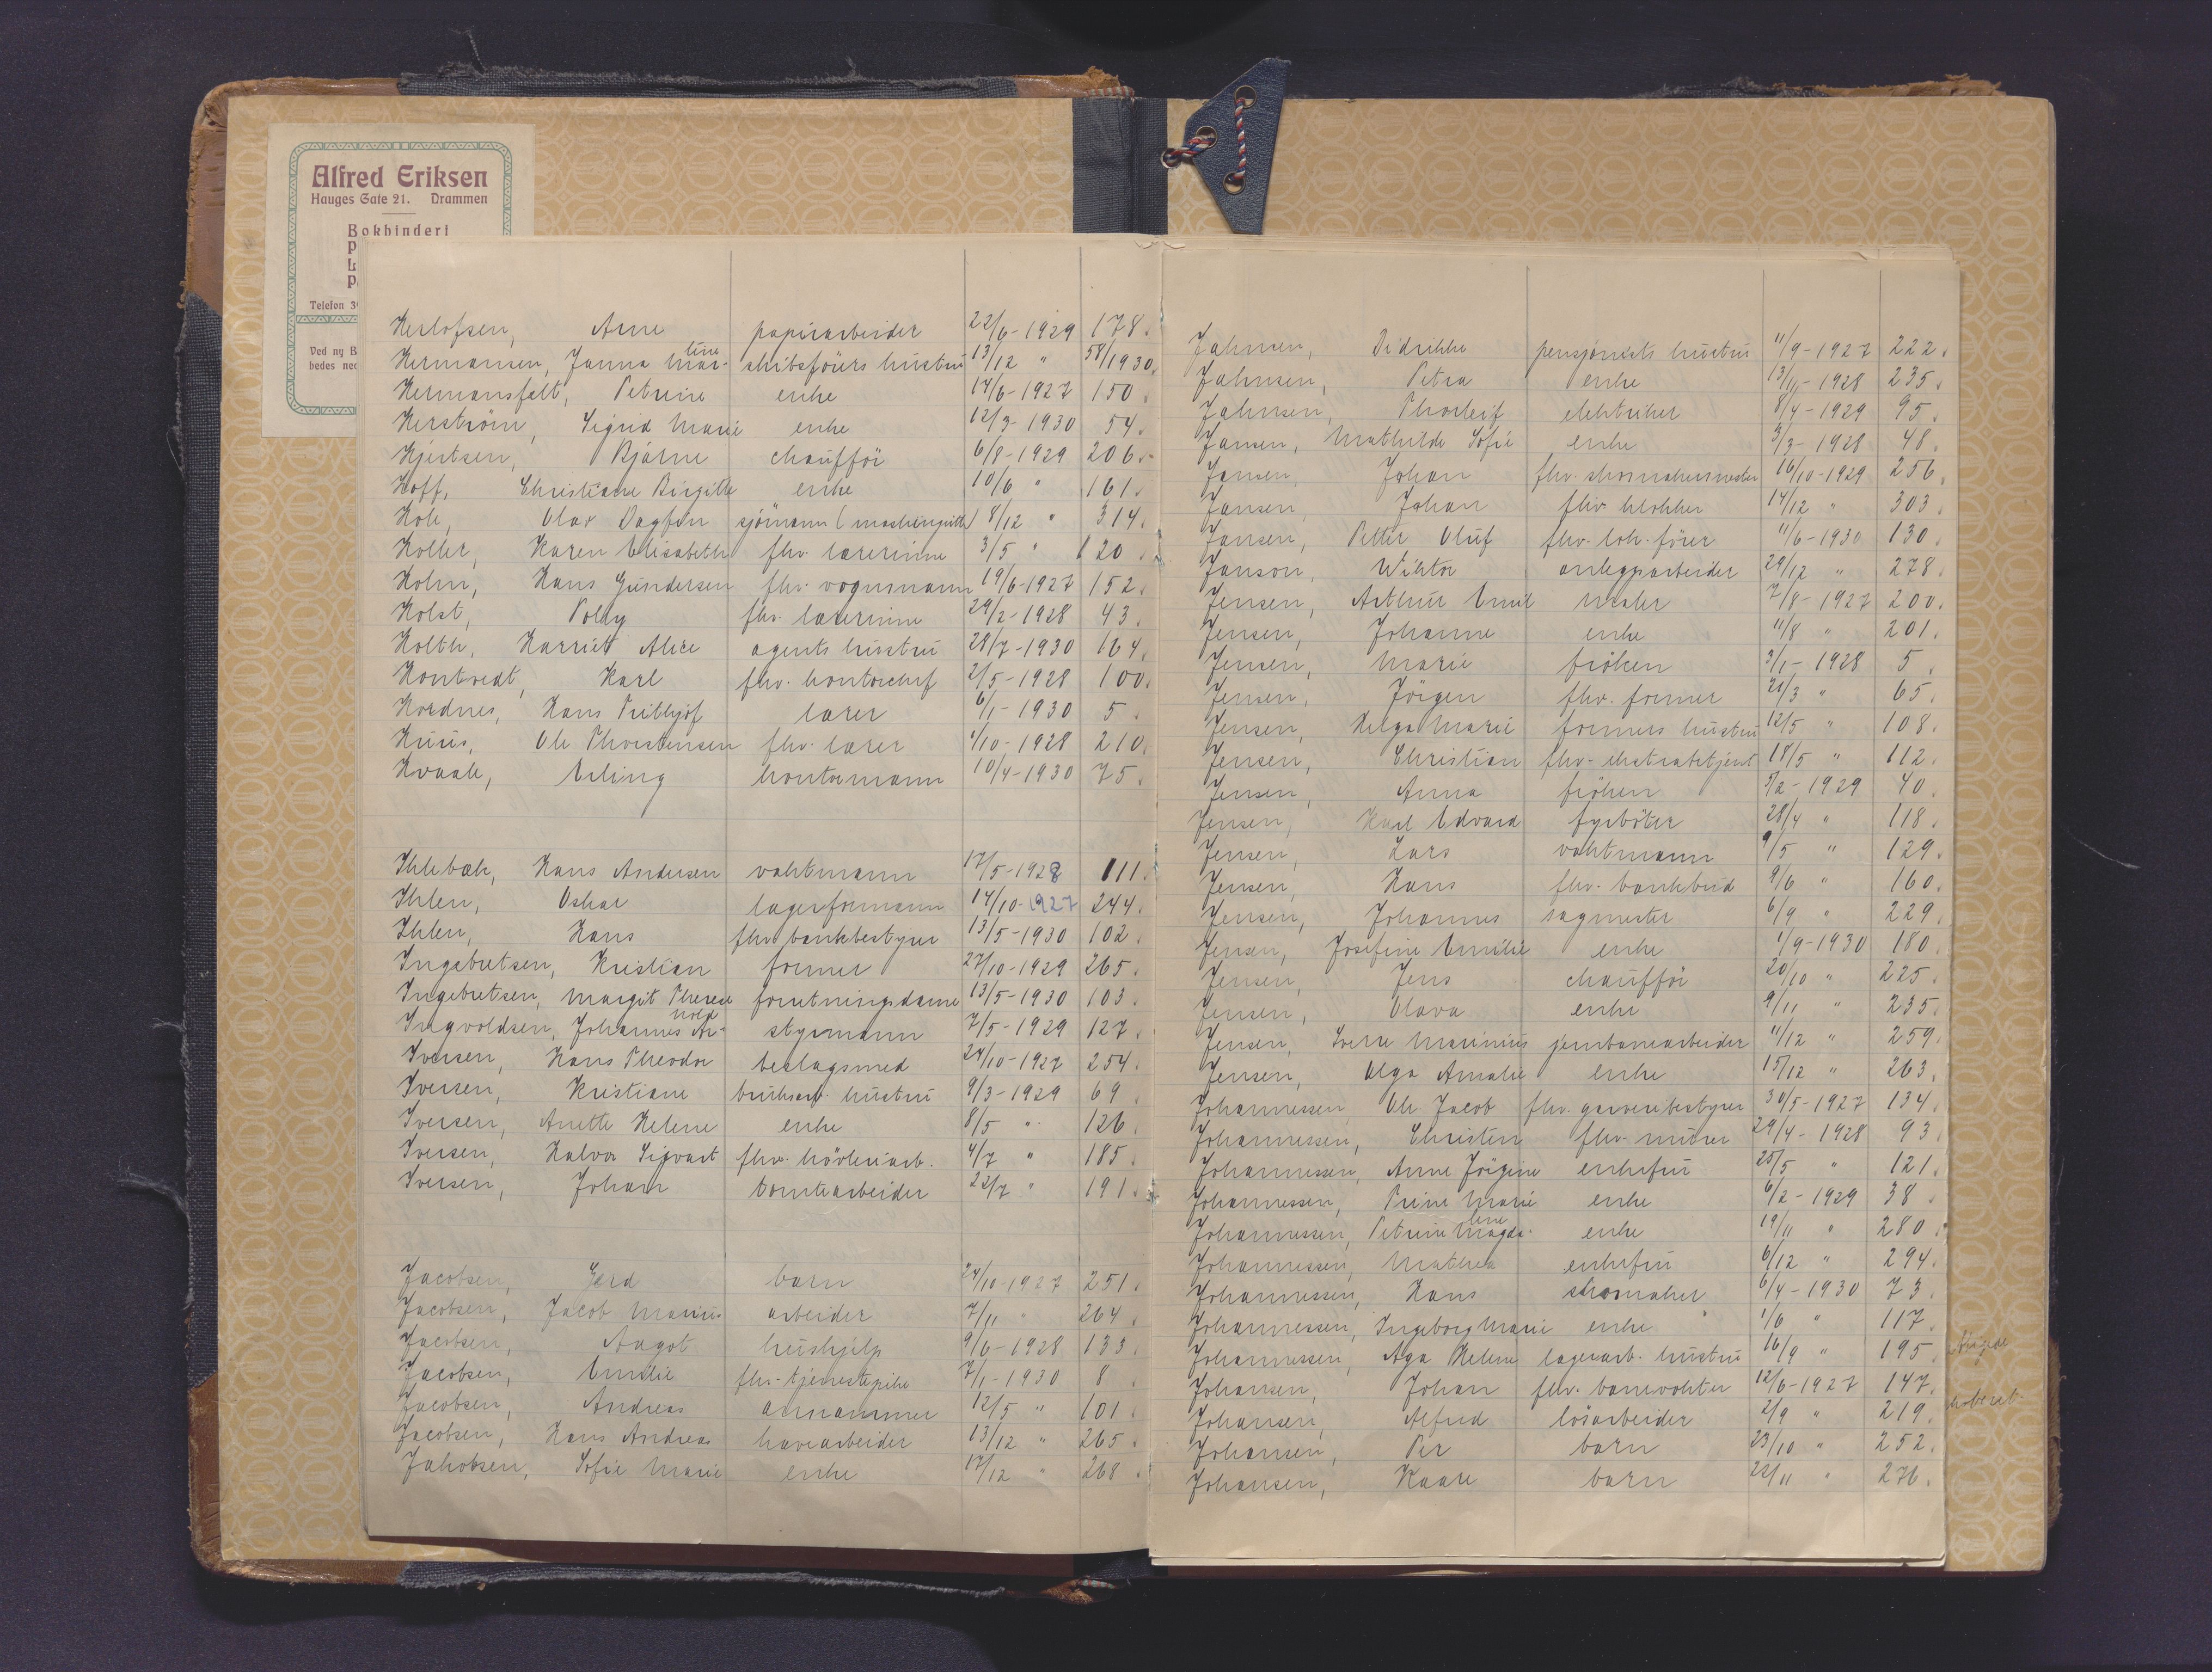 Alfred Eriksen
Hauges Gate 21. Drammen
Bokbinderi
P
L
P
Telefon 3
Ved ny B
bedes ned
Herlofsen, Arne papirarbeider 22/6-1929 178.
Hermansen, Janna Mar-line skibsförers hustru 13/12 " 58/1930.
Hermansfelt, Petrine enke 14/6-1927 150.
Herström, Sigrid Marie enke 12/3-1930 54.
Hjertsen, Bjarne chaufför 6/8-1929 206.
Hoff, Christiane Birgitte enke 10/6 " 161.
Hole, Olav Dagfin sjömann 8/12 " 314.
Holler, Karen Elisabeth fhv. lærerinne 3/5 " 120.
Holm, Hans Gundersen fhv. vognmann 19/6-1927 152.
Holst, Polly fhv. lærerinne 29/2-1928 43.
Holth, Harriet Alice agents hustru 28/7-1930 164.
Hontvedt, Karl fhv. kontorchef 2/5-1928 100.
Hordnes, Hans Fritthjof lærer 6/1-1930 5.
Huus, Ole Thorstensen fhv. lærer 1/10-1928 210.
Hvaale, Erling kontormann 10/4-1930 75.
Ihlebæk, Hans Andersen vaktmann 17/5-1928 111.
Ihlen, Oskar lagerformann 14/10-1927 244.
Ihlen, Hans fhv. bankbestyrer 13/5-1930 102.
Ingebretsen, Kristian former 27/10-1929 265.
Ingebretsen, Margit Therese forretningsdame 13/5-1930 103.
Ingvoldsen, Johannes Ar-nold styrmann 7/5-1929 127.
Iversen, Hans Theodor beslagsmed 24/10-1927 254.
Iversen, Kristiane bruksarb. hustru 9/3-1929 69.
Iversen, Anette Helene enke 8/5 " 126.
Iversen, Halvor Sigvart fhv. hövleriarb. 4/7 " 185.
Iversen, Johan tomtearbeider 22/7 " 191.
Jacobsen, Gerd barn 24/10-1927 251.
Jacobsen, Jacob Marius arbeider 7/11 " 264.
Jacobsen, Aagot hushjelp 9/6-1928 133.
Jacobsen, Emilie fhv. tjenestepike 7/1-1930 8.
Jacobsen, Andreas annammer 12/5 " 101.
Jacobsen, Hans Andreas havearbeider 13/12 " 265.
Jakobsen, Sofie Marie enke 17/12 " 268.
Jahnsen, Didrikke pensjonists hustru 11/9-1927 222.
Jahnsen, Petra enke 13/11-1928 235.
Jahnsen, Thorleif elektriker 8/4-1929 95.
Jansen, Mathilde Sofie enke 3/3-1928 48.
Jansen, Johan fhv. skomakermester 16/10-1929 256.
Jansen, Johan fhv. klokker 14/12 " 303.
Jansen, Petter Oluf fhv. lok. förer 11/6-1930 130.
Janson, Wiktor anleggsarbeider 29/12 " 278.
Jensen, Arthur Emil maler 7/8-1927 200.
Jensen, Johanne enke 11/8 " 201.
Jensen, Marie fröken 3/1-1928 5.
Jensen, Jörgen fhv. former 20/3 " 65.
Jensen, Helga Marie formers hustru 12/5 " 108.
Jensen, Christian fhv. ekstrabetjent 18/5 " 112.
Jensen, Anna fröken 5/2-1929 40.
Jensen, Karl Edvard fyrböter 28/4 " 118.
Jensen, Lars vaktmann 9/5 " 129.
Jensen, Hans fhv. bankbud 9/6 " 160.
Jensen, Johannes sagmester 6/9 " 229.
Jensen, Josefine Emilie enke 1/9-1930 180.
Jensen, Jens chaufför 20/10 " 225.
Jensen, Olava enke 9/11 " 235.
Jensen, Sverre Marinius jernbanearbeider 11/12 " 259.
Jensen, Olga Amalie enke 15/12 " 263.
Johannessen, Ole Jacob fhv. garveribestyrer 30/5-1927 134.
Johannessen, Christen fhv. murer 29/4-1928 93.
Johannessen, Anne Jörgine enkefru 25/5 " 121.
Johannessen, Trine Marie enke 6/2-1929 38.
Johannessen, Petrine Magda-lene enke 19/11 " 280.
Johannessen, Mathea enkefru 6/12 " 294.
Johannessen, Hans skomaker 6/4-1930 73.
Johannessen, Ingeborg Marie enke 1/6 " 117.
Johannessen, Aga Helene lagerarb. hustru 16/9 " 195.
Johansen, Johan fhv. banevokter 12/6-1927 147.
Johansen, Alfred lösarbeider 2/9 " 219.
Johansen, Per barn 23/10 " 252.
Johansen, Kaare barn 22/11 " 276.